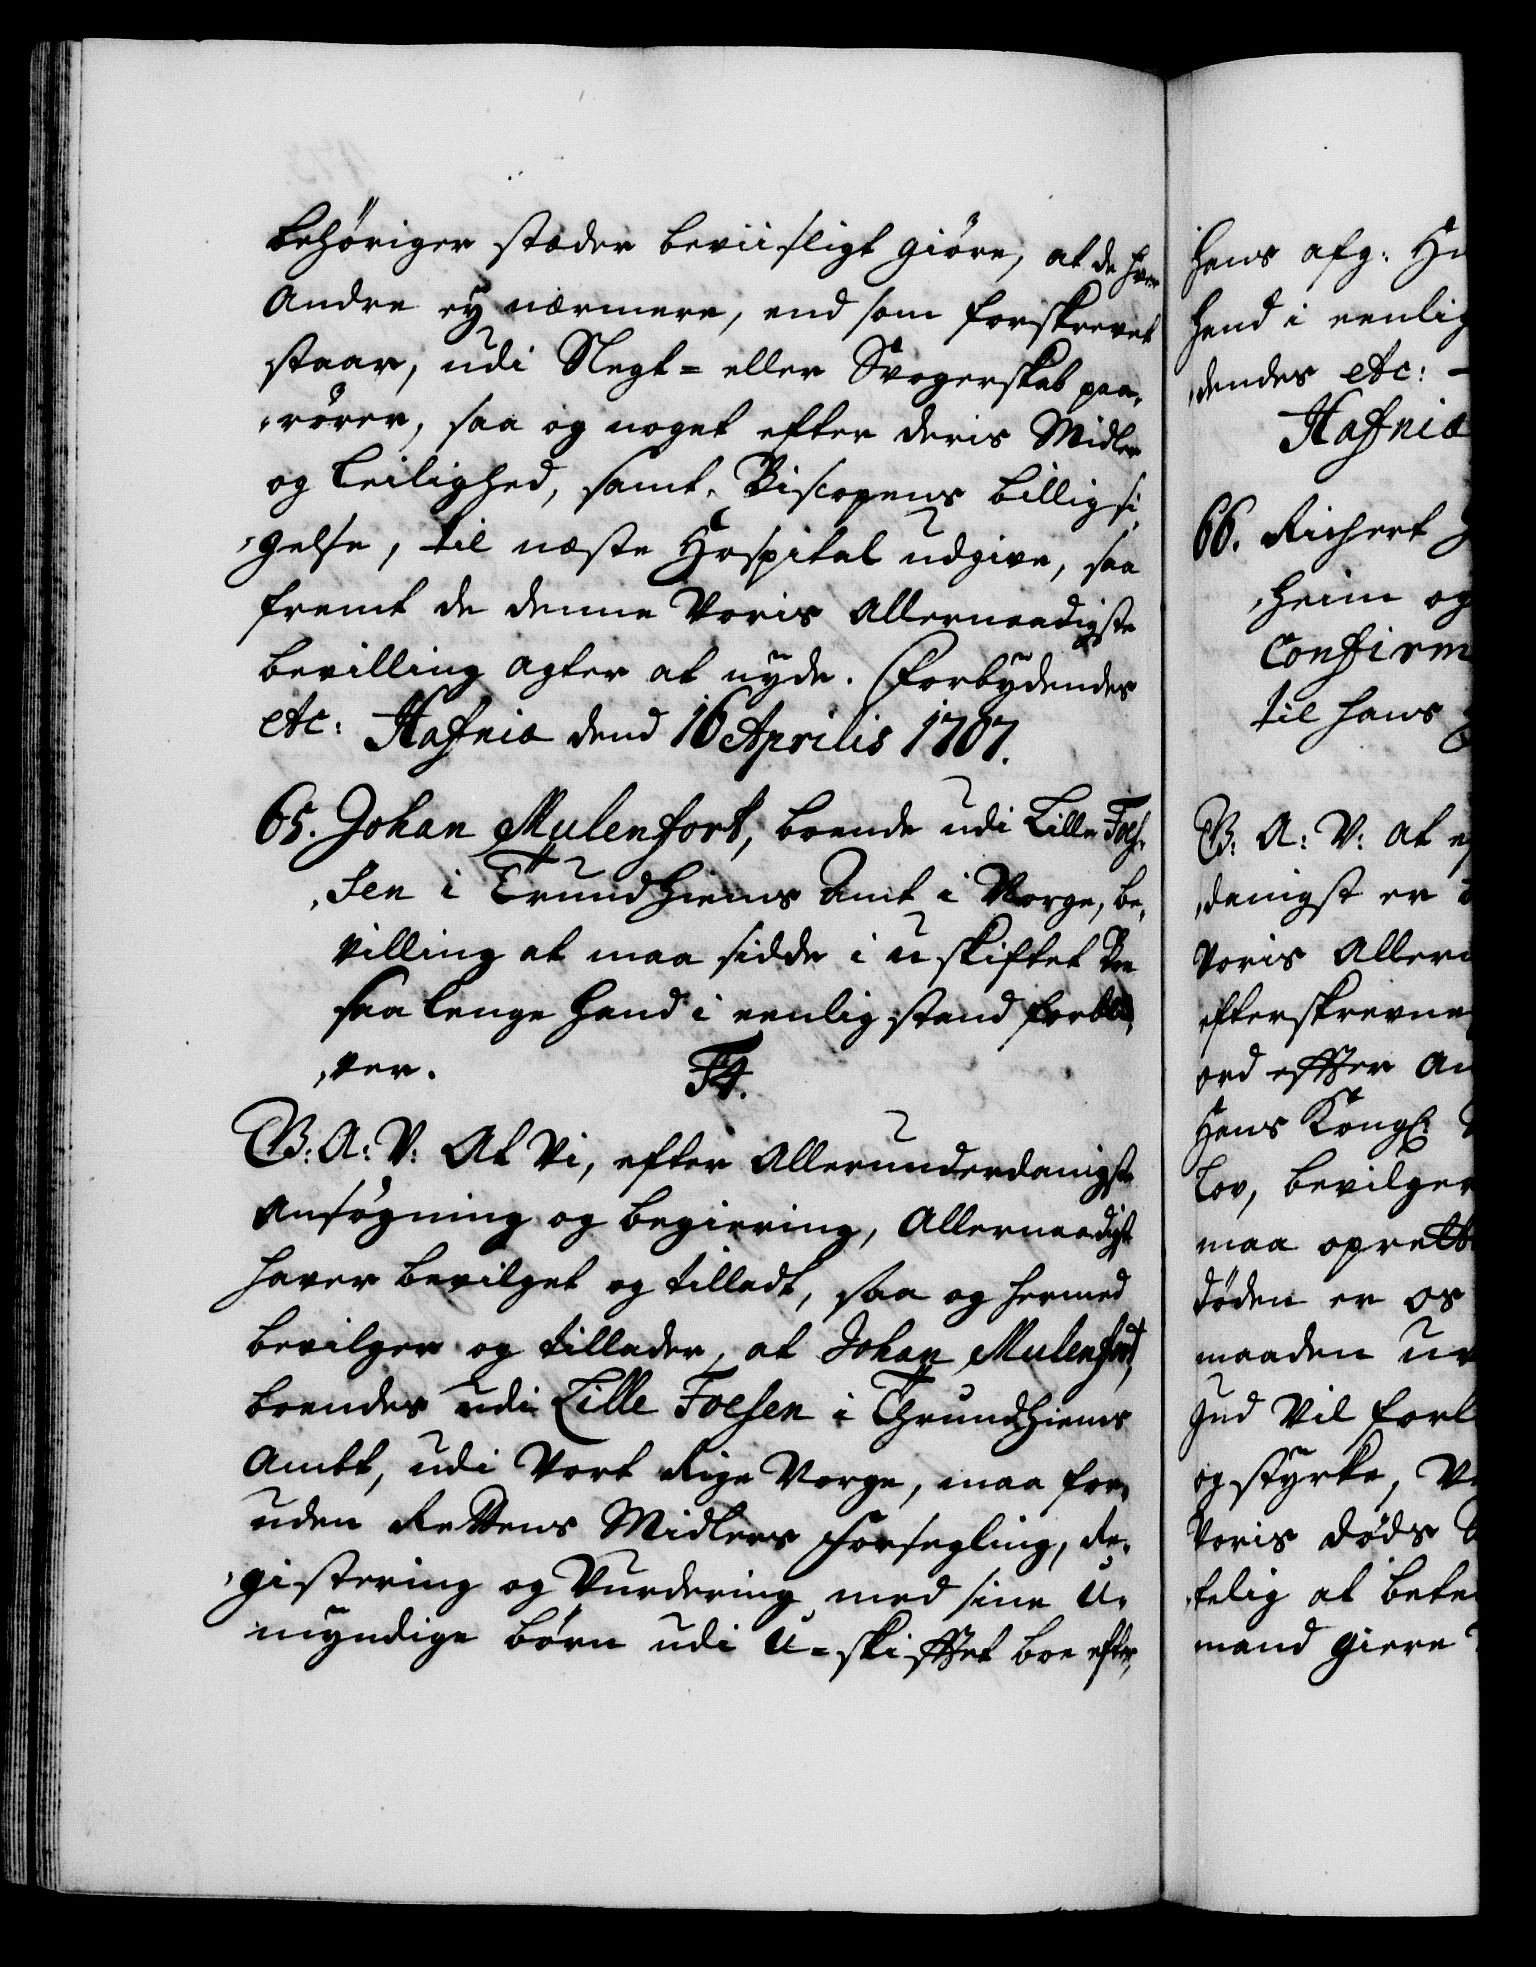 behöriger stæder beviisligt giöre, at de hver
Andre ey nærmere, end som forskrevet
staar, udi Slegt- eller Svogerskab paa,
,rörer, saa og noget efter deris Midler
og Leilighed, samt Biscopens billigsi,
,gelse, til næste Hospital udgive, saa
fremt de denne Voris Allernaadigste
bevilling agter at nyde. Forbydendes
etc: Hafniæ dend 16 Aprilis 1707.
65. Johan Mulenfort, boende udi Lille Foes,
,sen i Trundhiems Amt i Norge, be,
villing at maa sidde i uskiftet Boe
saa lenge hand i eenlig stand forbli,
,ver. F4.
G: A: V: At Vi, efter Allerunderdanigste
Ansögning og begiering, Allernaadigst
haver bevilget og tilladt, saa og hermed
bevilger og tillader, at Johan Mulenfort,
boendes udi Lille Foesen i Thrundhiems
Ambt, udi Vort Rige Norge, maa for,
uden Rettens Midlers Forsegling, Re,
,gistering og Vurdering med sine U,
myndige börn udi U-skifftet boe efter,
hans afg: Hu
hand i eenlig
,dendes etc: -
Hafniæ
66. Richert
,heim og
Confirm
til hans
G: A: V: At ef
,danigst er
Voris Allern
efterskrevne
ord effter An
Hans Kongl:
Lov, bevilger
maa oprette
döden er os
maaden uv
Gud Vil forl
og styrke, V
Voris döds
,telig at bete
mand giere